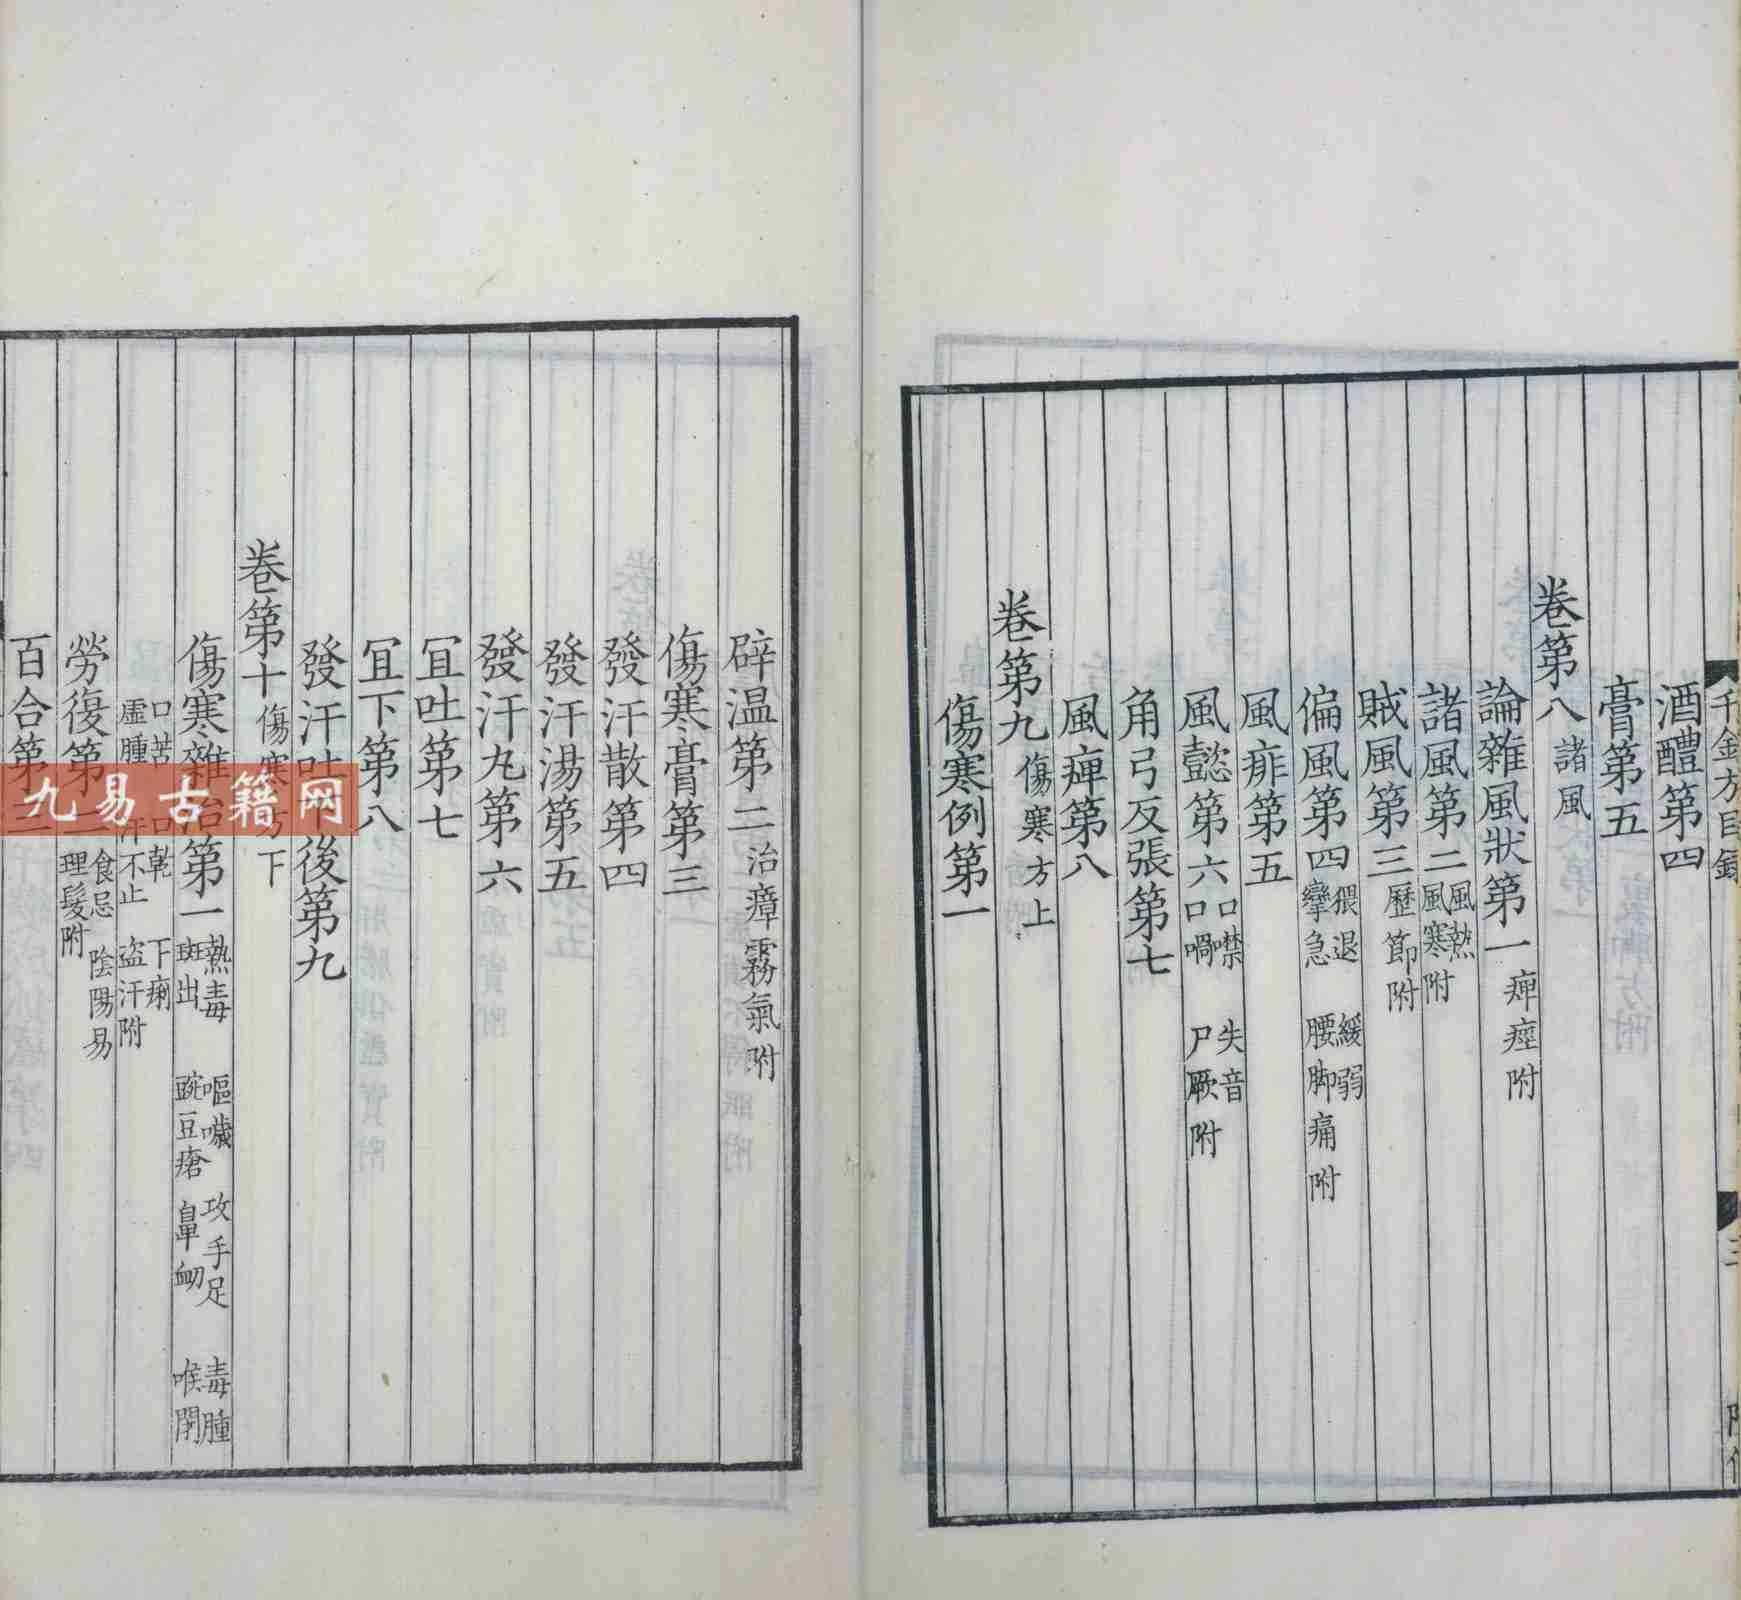 千金方目錄
三
酒醴第四
膏第五
卷第八 諸風
論雜風狀第一 痺痙附
諸風第二 風熱 風寒附
賊風第三 歷節附
偏風第四 猥退 緩弱 攣急 腰脚痛附
風痱第五
風懿第六 口噤 失音 口喎 尸厥附
角弓反張第七
風痺第八
卷第九 傷寒方上
傷寒例第一
辟温第二 治瘴霧氣附
傷寒膏第三
發汗散第四
發汗湯第五
發汗丸第六
冝吐第七
冝下第八
發汗吐下後第九
卷第十 傷寒方下
傷寒雜治第一 熱毒 嘔噦 攻手足 毒腫 斑出 豌豆瘡 鼻衂 喉閉
口苦 口乾 下痢 虛腫 汗不止 盗汗附
勞復第二 食忌 陰陽易 理髮附
百合第三
九易古籍网